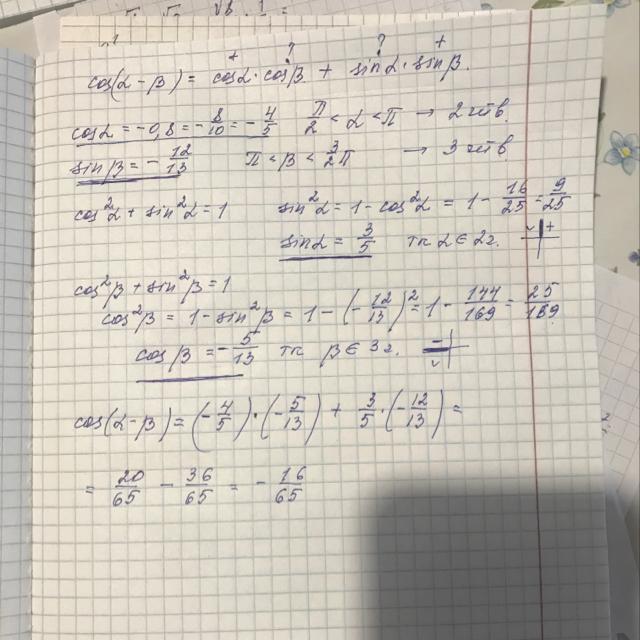 cos(α-β) = cosα·cosβ + sinα·sinβ.
cosα = -0,8 = -8/10 = -4/5 π/2 < α < π → 2 четв.
sinβ = -12/13 π < β < 3/2π → 3 четв
cos²α + sin²α = 1 sin²α = 1 - cos²α = 1 - 16/25 = 9/25
sinα = 3/5 тк α ∈ 2г.
cos²β + sin²β = 1
cos²β = 1 - sin²β = 1 - (-12/13)² = 1 - 144/169 = 25/169
cosβ = -5/13 тк β ∈ 3г.
cos(α-β) = (-4/5)·(-5/13) + 3/5·(-12/13) =
= 20/65 - 36/65 = -16/65